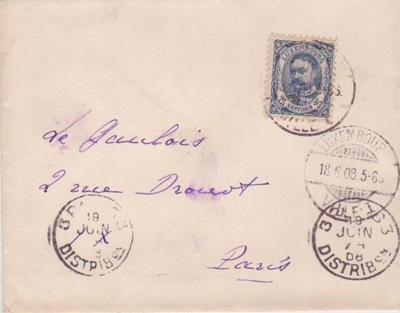 LUXEMBOURG
25 25
VILLE
Le Gaulois
2 rue Drouot
Paris
LUXEMBOURG
18.6.08.5-6S
VILLE
3 PARIS 3
19
JUIN
08
DISTRIBON
3 PARIS 3
19
JUIN
08
DISTRIBON